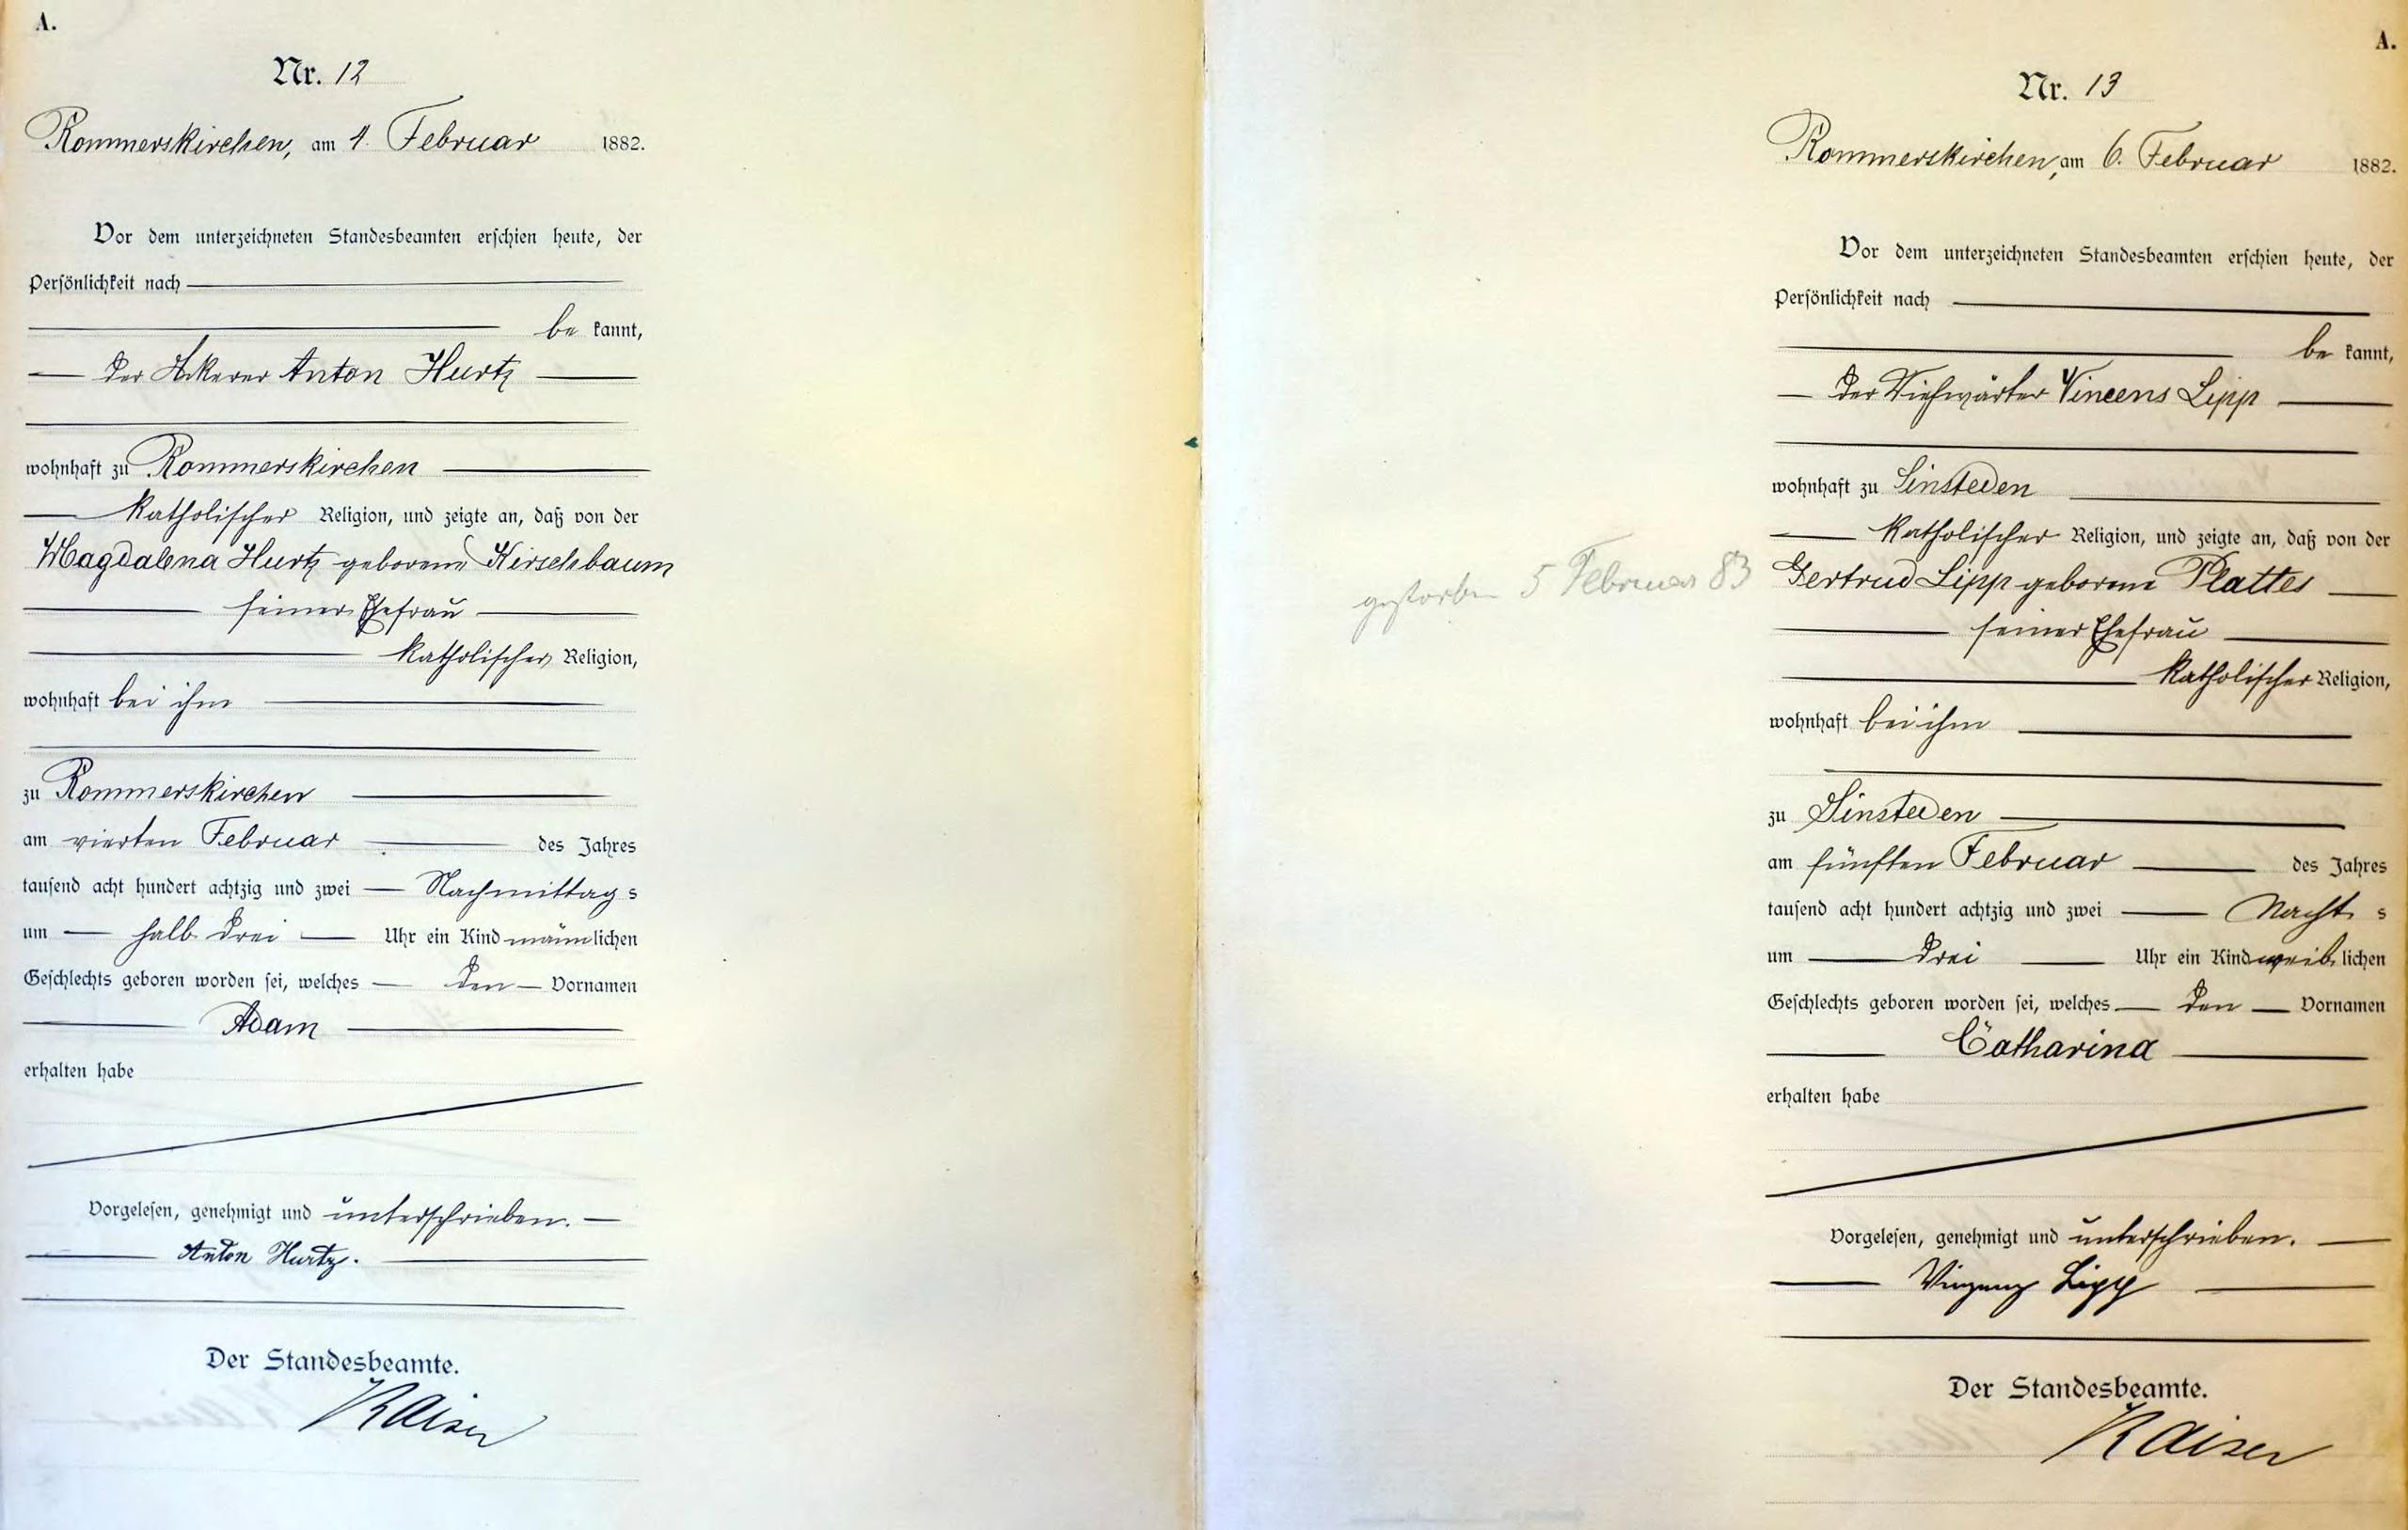 A.
Nr. 12
Rommerskirchen, am 4. Februar 1882.
Vor dem unterzeichneten Standesbeamten erschien heute, der
Persönlichkeit nach
be kannt,
der Ackerer Anton Hurtz
wohnhaft zu Rommerskirchen
katholischer Religion, und zeigte an, daß von der
Magdalena Hurtz geborene Kirschbaum
seiner Ehefrau
katholischer Religion,
wohnhaft bei ihm
zu Rommerskirchen
am vierten Februar des Jahres
tausend acht hundert achtzig und zwei Nachmittag s
um halb drei Uhr ein Kind männlichen
Geschlechts geboren worden sei, welches den Vornamen
Adam
erhalten habe
Vorgelesen, genehmigt und unterschrieben.
Anton Hurtz.
Der Standesbeamte.
Kaiser
A.
Nr. 13
Rommerskirchen, am 6. Februar 1882.
Vor dem unterzeichneten Standesbeamten erschien heute, der
Persönlichkeit nach
be kannt,
der Viehwärter Vincens Lipp
wohnhaft zu Sinsteden
katholischer Religion, und zeigte an, daß von der
gestorben 5 Februar 83
Gertrud Lipp geborene Plattes
seiner Ehefrau
katholischer Religion,
wohnhaft bei ihm
zu Sinsteden
am fünften Februar des Jahres
tausend acht hundert achtzig und zwei Nacht s
um drei Uhr ein Kind weiblichen
Geschlechts geboren worden sei, welches den Vornamen
Catharina
erhalten habe
Vorgelesen, genehmigt und unterschrieben.
Vinzenz Lipp
Der Standesbeamte.
Kaiser